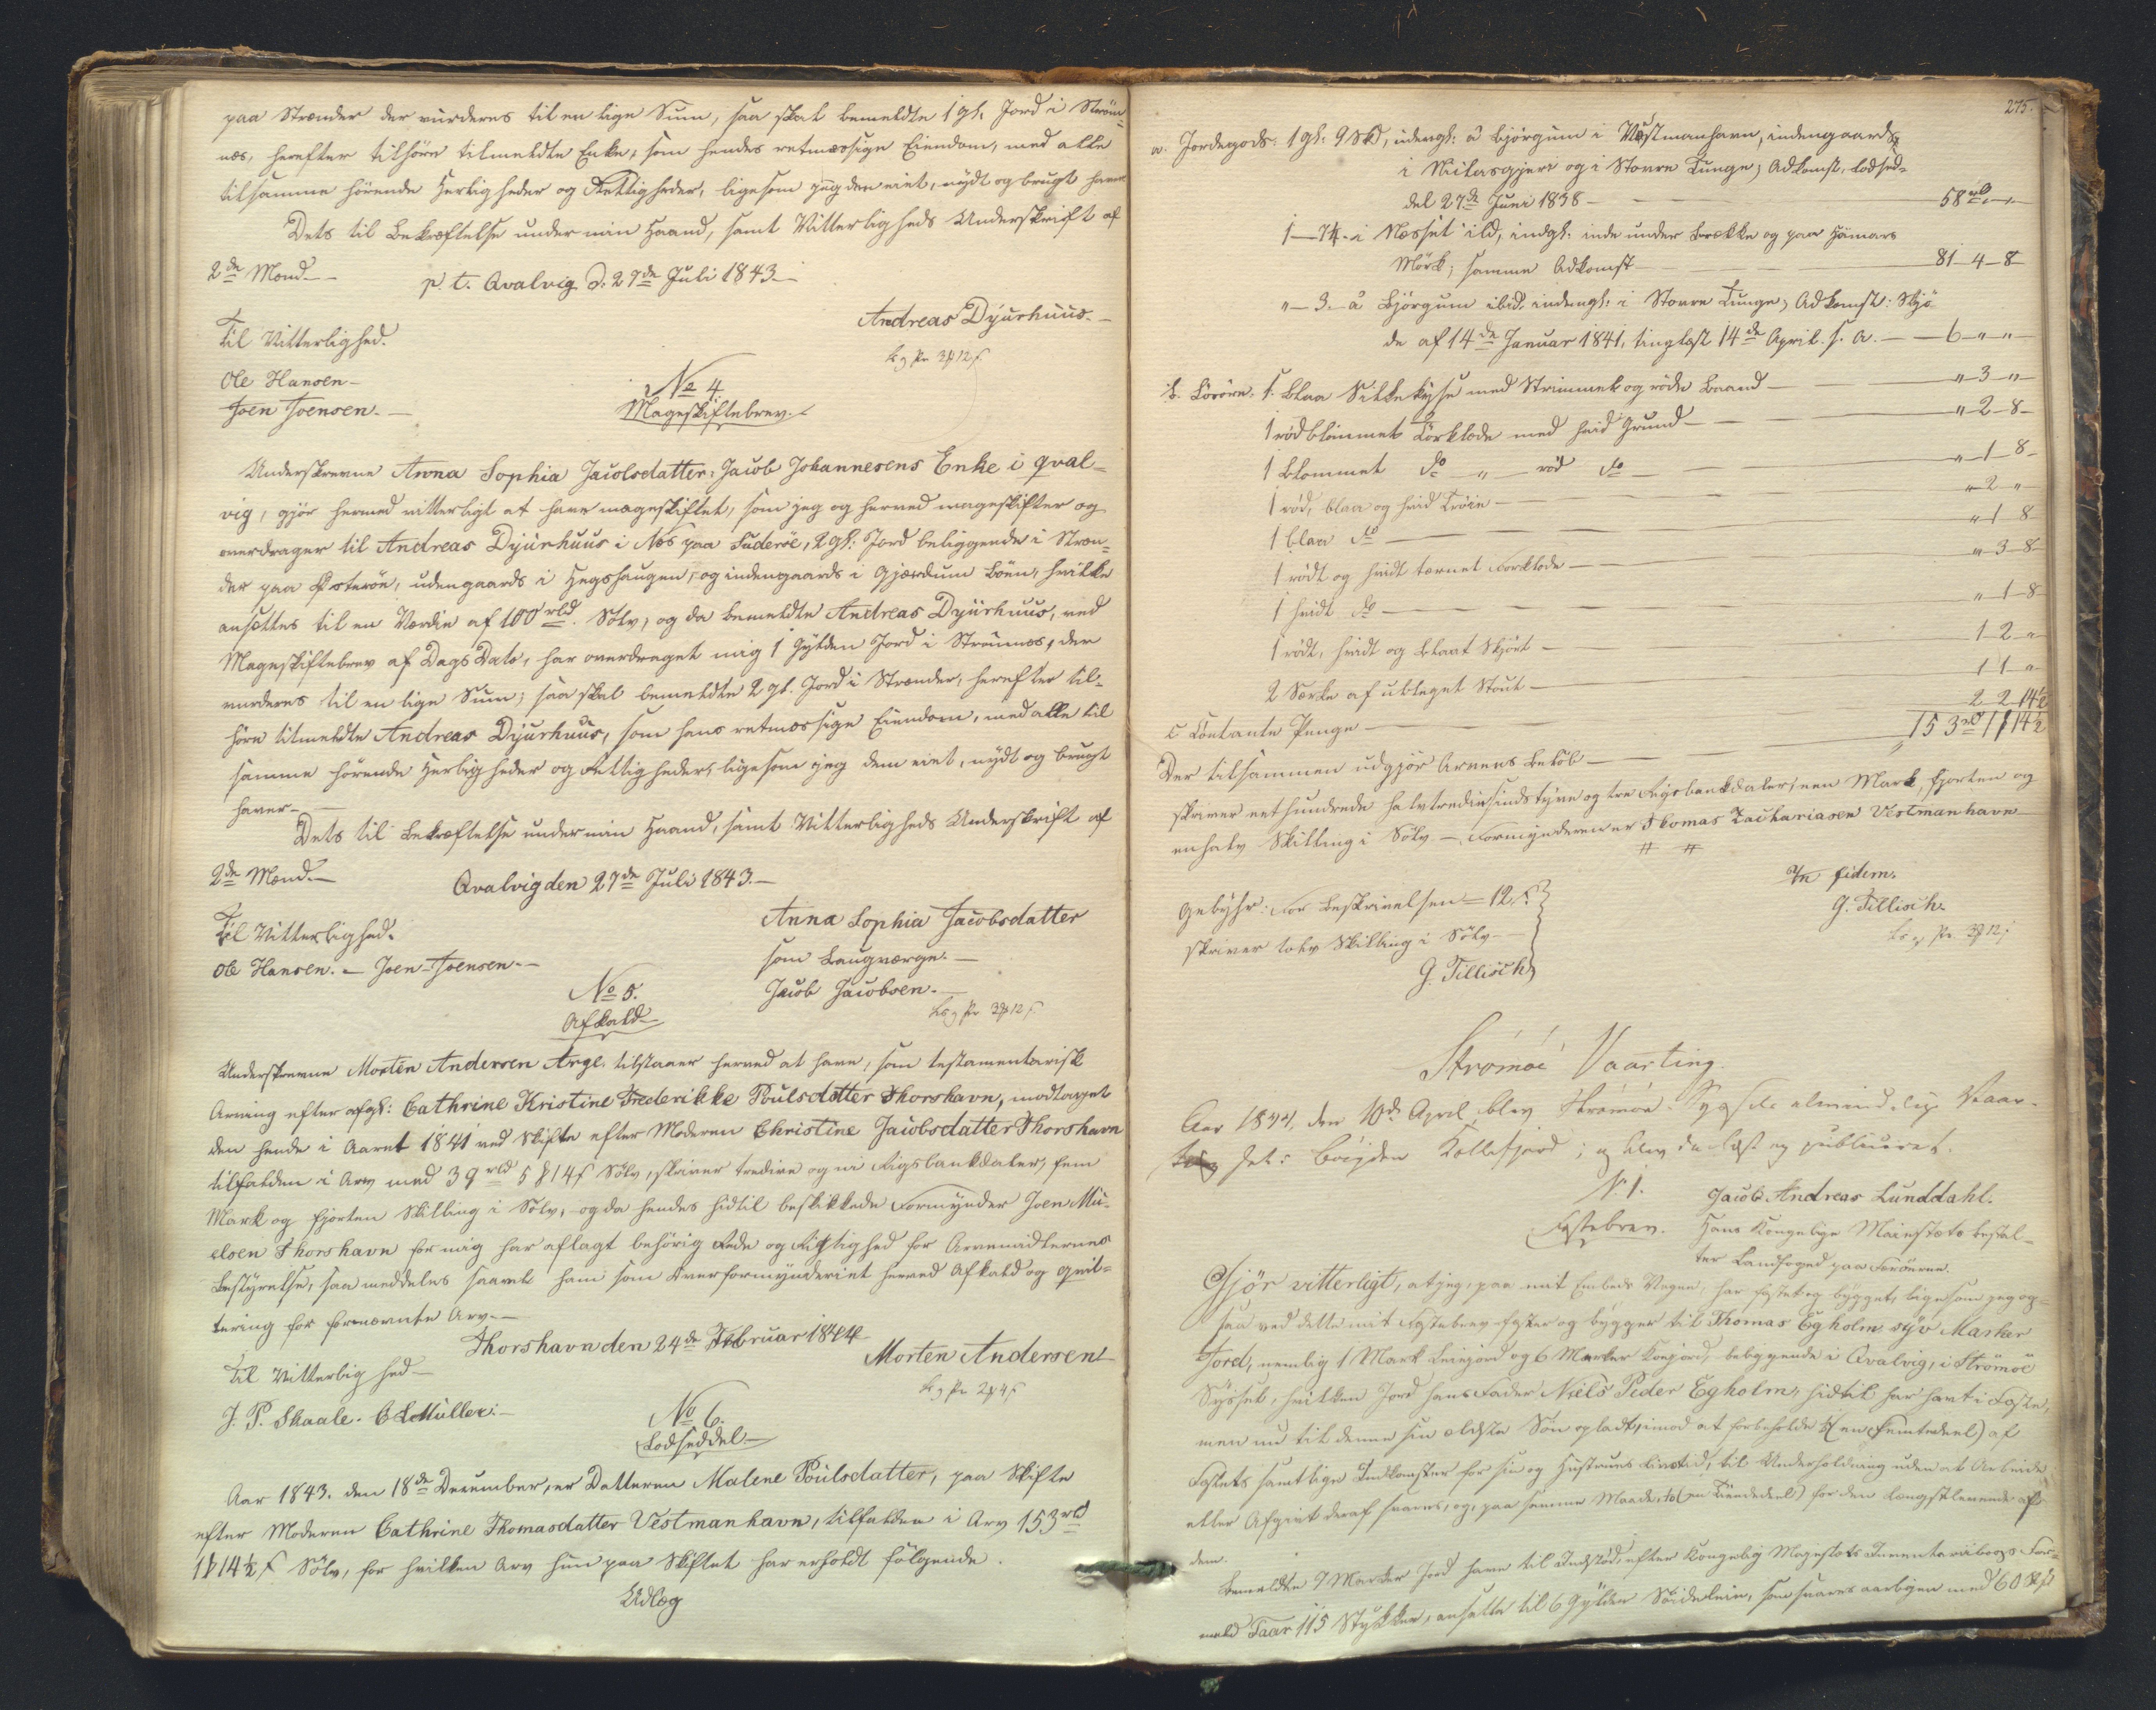 paa Strender der vurderes til en lige Sum, saa skal bemeldte 1 gl. Jord i Ström-
næs, herefter tilhöre tilmeldte Enke, som hendes retmæssige Eiendom, med alle
tilsamme hörende Herligheder og Rettigheder, ligesom jeg den eiet, nydt og brugt haver
Dets til Bekræftelse under min Haand, samt Vitterligheds Underskrift af
2de Mænd.
p. t. Qvalvig d. 27de Juli 1843
Andreas Djurhuus.
Til Vitterlighed.
Ole Hansen
Joen Joensen.
No 4.
Mageskiftebrev.
Underskrevne Anna Sophia Jacobsdatter, Jacob Johannesens Enke i Qval-
vig, gjör hermed vitterligt at have mageskiftet, som jeg og herved mageskifter og
overdrager til Andreas Djurhuus i Næs paa Suderöe, 2 gl: Jord beliggende i Stren-
der paa Österöe, udengaards i Hegshaugen, og indengaards i Gjærdum Böen, hvilke
ansættes til en Værdie af 100 rbd. Sölv, og da bemeldte Andreas Djurhuus, ved
Mageskiftebrev af Dags Dato, har overdraget mig 1 Gylden Jord i Strömnæs, der
vurderes til en lige Sum; saa skal bemeldte 2 gl. Jord i Strender, herefter til-
höre tilmeldte Andreas Djurhuus, som hans retmæssige Eiendom, med alle til
samme hörende Herligheder og Rettigheder, ligesom jeg dem eiet, nydt og brugt
haver.
Dets til Bekræftelse under min Haand, samt Vitterligheds Underskrift af
2de Mænd.
Qvalvig den 27de Juli 1843.
Anna Sophia Jacobsdatter
Til Vitterlighed.
som Laugværge.
Ole Hansen. Joen Joensen.
Jacob Jacobsen.
No 5.
Afkald
Underskrevne Morten Andersen Arge tilstaaer herved at have, som testamentarisk
Arving efter afgl: Cathrine Kristine Frederikke Poulsdatter Thorshavn, modtaget
den hende i Aaret 1841 ved Skifte efter Moderen Christine Jacobsdatter Thorshavn
tilfalden i Arv med 39 rbd 5 14 s Sölv, skriver tredive og ni Rigsbankdaler, fem
Mark og fjorten Skilling i Sölv, og da hendes hidtil beskikkede Formynder Joen Mü-
elsen Thorshavn for mig har aflagt behörig Rede og Rigtighed for Arvemidlernes
Bestyrelse, saa meddeles saavel ham som Overformynderiet herved Afkald og Qvit-
tering for fornævnte Arv.
Thorshavn den 24de Februar 1844
Til Vitterlighed
Morten Andersen
J. P. Skaale. C L Müller.
No 6.
Lodseddel.
Aar 1843. den 18de December, er Datteren Malene Poulsdatter, paa Skifte
efter Moderen Cathrine Thomasdatter Vestmanhavn, tilfalden i Arv 153 rbd
1 14½ s Sölv, for hvilken Arv hun paa Skiftet har erholdt fölgende
Udlæg
275.
a. Jordegods: 1 gl. 9 Skd, indengl: á Björgum i Vestmanhavn, indengaards
i Nilasgjære og i Storre Tunge; Adkomst, Lodsed-
del 27de Juni 1838 58 rbd
1 – 7¼ – i Næsset ibid, indgl: inde under Brekke og paa Hamars
Mörk; samme Adkomst 81 – 4 – 8
" – 3 – á Björgum ibid. indengl: i Storre Tunge; Adkomst: Skjö
de af 14de Januar 1841, tinglæst 14de April s. A. – 6 " "
b. Lösöre. 1 Blaa Silkekyse med Strimmel og röde Baand " 3 "
1 rödblommet Törklæde med hvid Grund " 2 8
1 Blommet do " röd do " 1 8
1 röd, blaa og hvid Tröie " 2 "
1 blaa do " 1 8
1 rödt og hvidt ternet Forklæde " 3 8
1 hvidt do " 1 8
1 rödt, hvidt og blaat Skjört 1 2 "
2 Særke af ubleget Stout 1 1 "
c Contante Penge 2 2 14½
Der tilsammen udgjör Arvens Belöb 153 rbd 1 14½
skriver eet hundrede halvtredsindstyve og tre Rigsbankdaler, een Mark, fjorten og
en halv Skilling i Sölv. Formynderen er Thomas Zachariasen Vestmanhavn
In fidem.
Gebyhr: For Beskrivelsen 12 s.
G. Tillisch.
skriver tolv Skilling i Sölv
G. Tillisch
Strömöe Vaarting.
Aar 1844, den 10de April blev Strömöe Syssels almindelige Vaar-
ting holdt i Bøigden Kollefjord; og blev da læst og publiceret.
No 1.
Jacob Andreas Lunddahl.
Fæstebrev.
Hans Kongelige Maiestæts bestal-
ter Landfoged paa Færöerne.
Gjör vitterligt, at jeg, paa mit Embeds Vegne, har fæstet og bygget, ligesom jeg og
saa ved dette mit Fæstebrev fæster og bygger til Thomas Egholm syv Marker
Jord, nemlig 1 Mark Leiejord og 6 Marker Kongejord, beliggende i Qvalvig, i Strömöe
Syssel, hvilken Jord hans Fader Niels Peder Egholm, hidtil har havt i Fæste,
men nu til denne sin ældste Sön opladt, imod at forbeholde ⅕ (en Femtedeel) af
Fæstets samtlige Indkomster for sin og Hustrues Livstid, til Underholdning uden at Arbeide
eller Afgivt deraf svares, og, paa samme Maade, 1/10 (en Tiendedeel) for den længstlevende af
dem.
Bemeldte 7 Marker Jord have til Indstöd, efter Kongelig Majestæts Inventariibogs For-
meld Faar 115 Stykker, ansatte til 6 Gylden Söideleie, som svares aarligen med 60 Skd